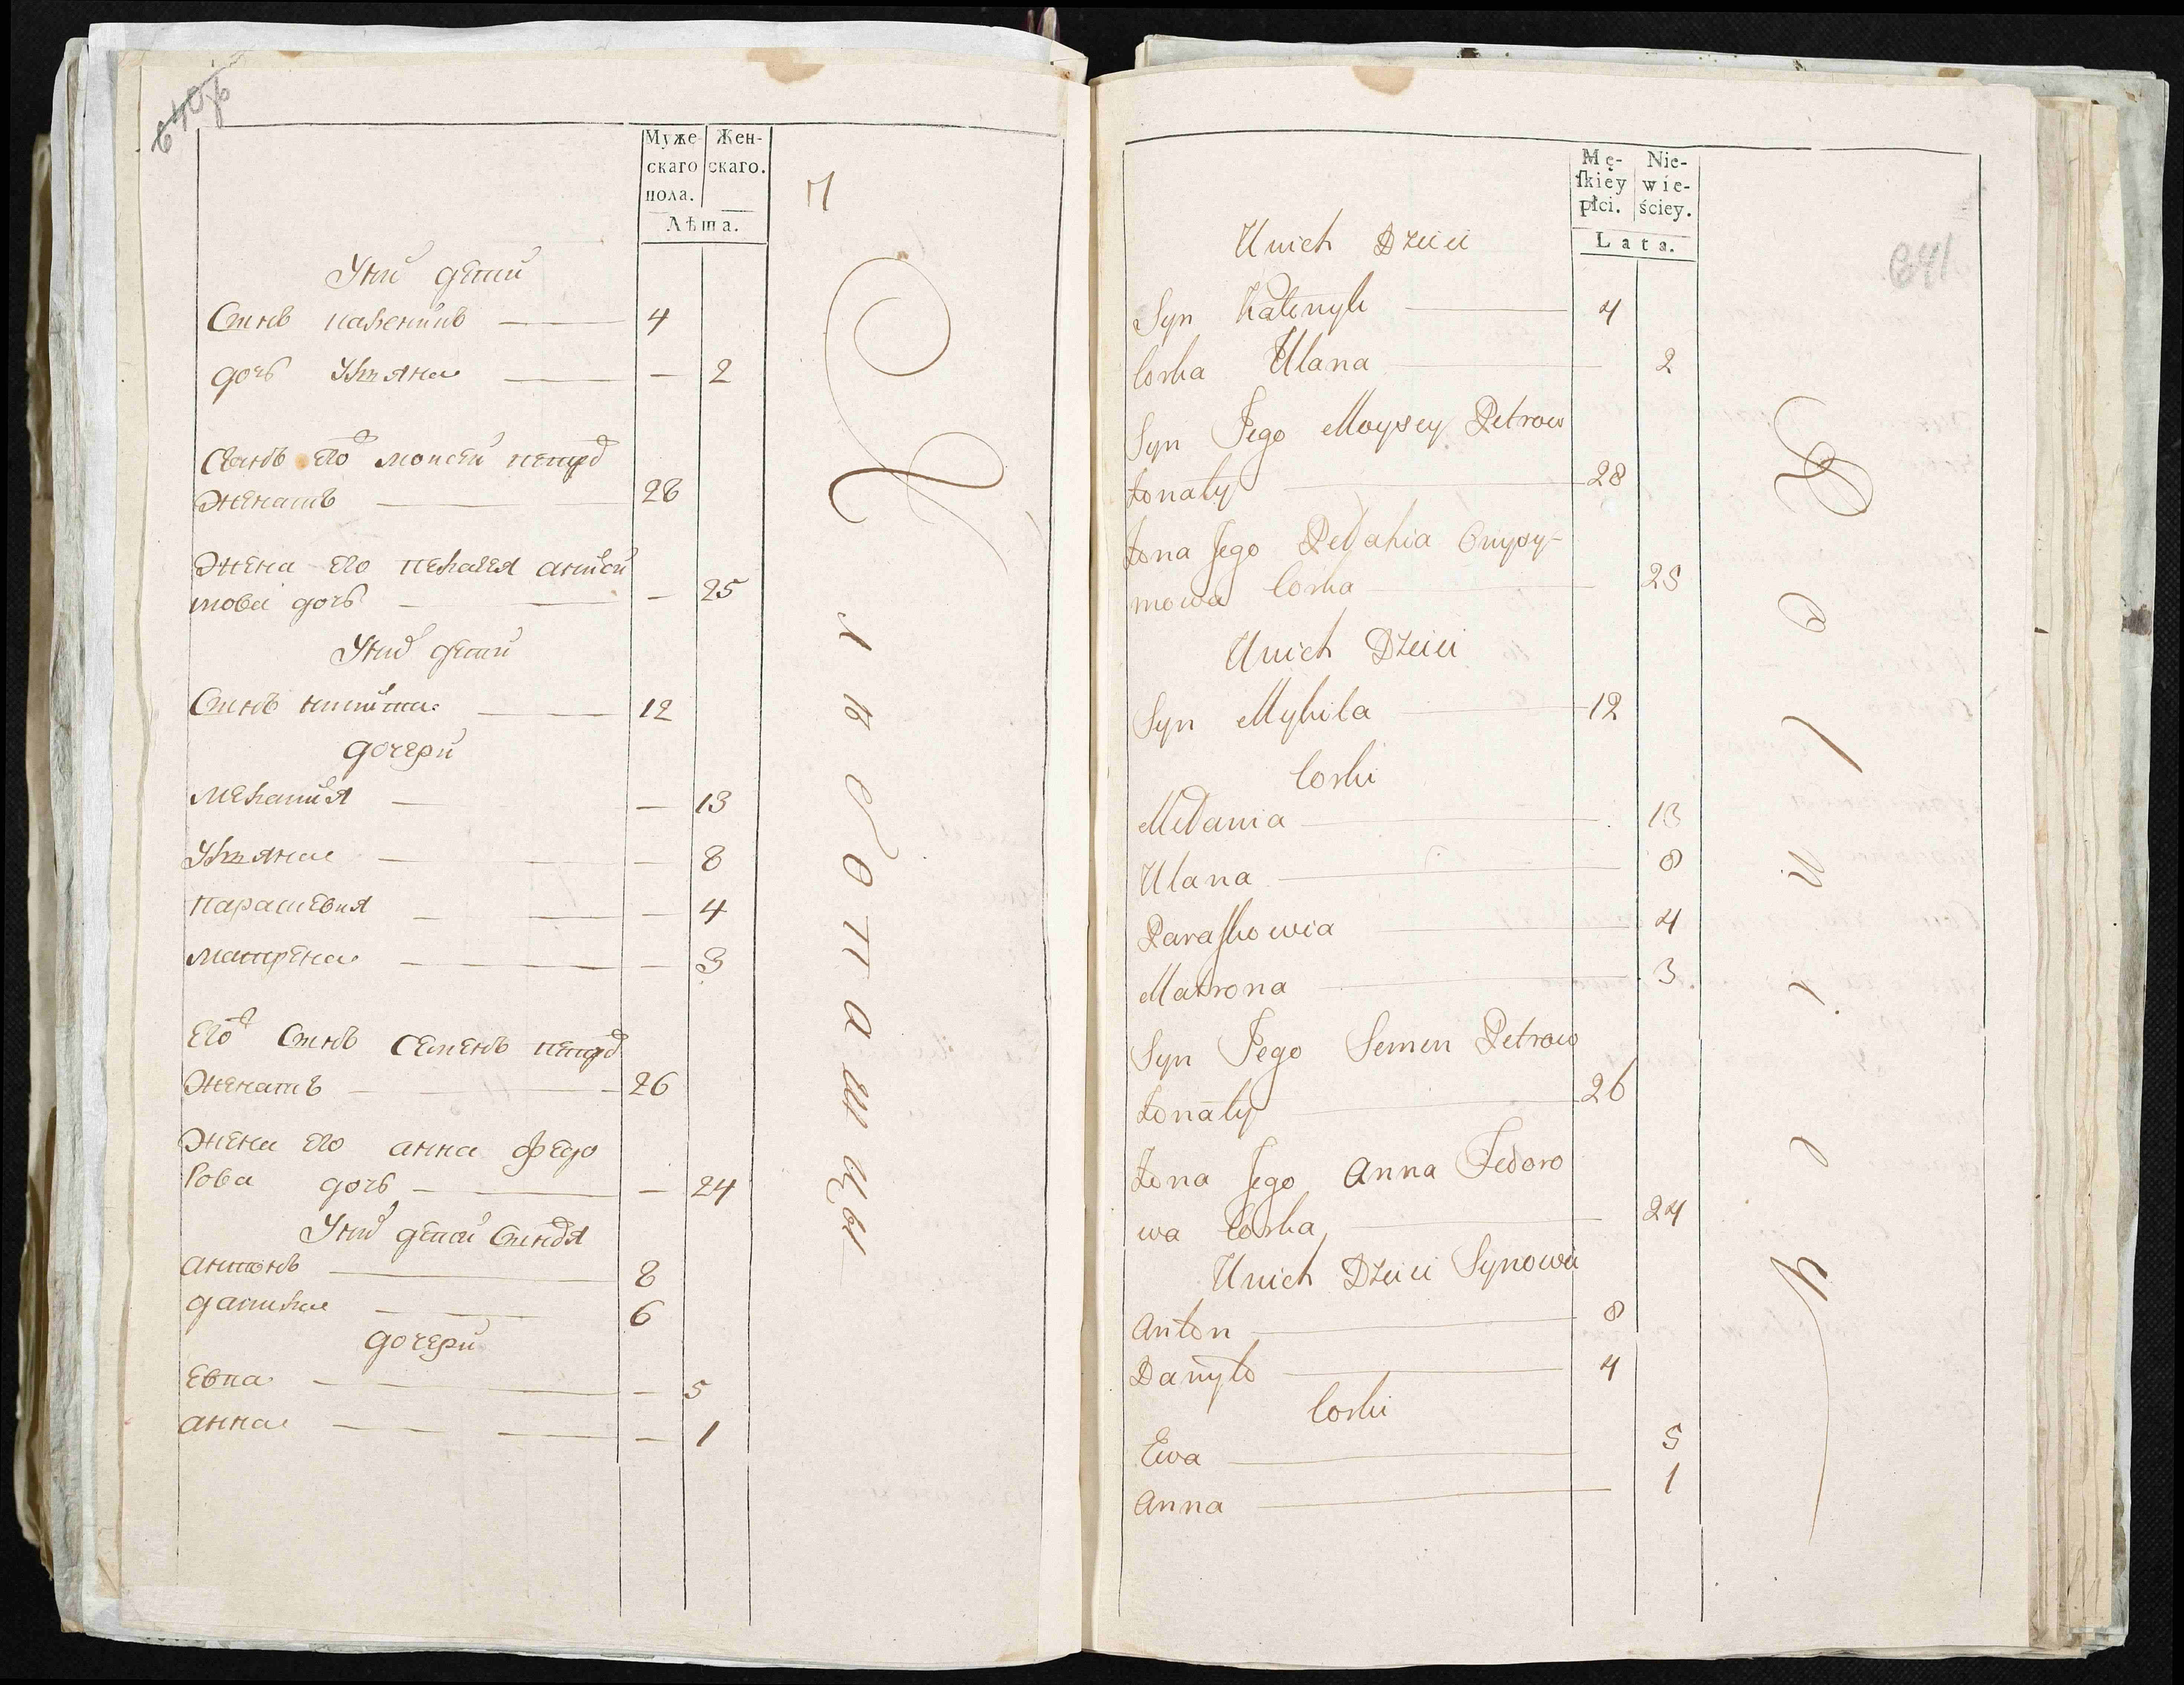 Муже-
скаго
пола.
Жен-
скаго.
Лѣта.
У них дети
Сынъ каленикъ 4
дочь Ульяна — 2
Сынъ его моисей петров
женатъ 28
жена его пелагея
мова дочь — 25
У них дети
Сынъ никита 12
дочери
мелания — 13
Ульяна — 8
параскевия — 4
матрена — 3
его Сынъ семенъ петров
женатъ 26
жена его анна федо
рова дочь — 24
У них дети Сыновя
антонъ 8
данила 6
дочери
евва — 5
анна — 1
Mę-
ſkiey
płci.
Nie-
wie-
ściey.
Lata.
641
Unich Dzieci
Syn Kalenyk 4
Corka Ulana 2
Syn Jego Moysey Petrow
żonaty 28
żona Jego Pelahia Onysy-
mowa Corka 25
Unich Dzieci
Syn Mykita 12
Corki
Melania 13
Ulana 8
Paraſkowia 4
Matrona 3
Syn Jego Semen Petrow
żonaty 26
żona Jego Anna Fedoro
wa Corka 24
Unich Dzieci Synowie
Anton 8
Danyło 4
Corki
Ewa 5
Anna 1